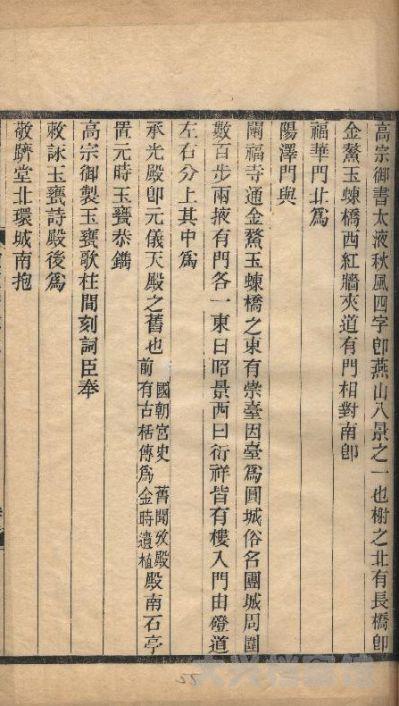 高宗御書太液秋風四字卽燕山八景之一也榭之北有長橋卽
金鰲玉蝀橋西紅牆夾道有門相對南卽
福華門北爲
陽澤門與
闡福寺通金鰲玉蝀橋之東有崇臺因臺爲圓城俗名團城周圍
數百步兩掖有門各一東曰昭景西曰衍祥皆有樓入門由磴道
左右分上其中爲
承光殿卽元儀天殿之舊也國朝宮史 舊聞攷殿前有古栝傳爲金時遺植殿南石亭
置元時玉甕恭鐫
高宗御製玉甕歌柱間刻詞臣奉
敕詠玉甕詩殿後爲
敬躋堂北環城南抱